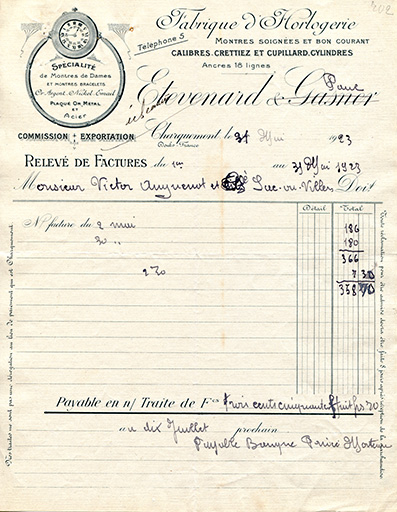 202
Fabrique d'Horlogerie
Téléphone 5
MONTRES SOIGNÉES ET BON COURANT
CALIBRES. CRETTIEZ ET CUPILLARD. CYLINDRES
Ancres 18 lignes
SPÉCIALITÉ
de Montres de Dames
ET MONTRES BRACELETS
Or. Argent. Nickel. Email
PLAQUÉ OR, MÉTAL
ET
Acier
Paul
Etevenard & Gasnier
COMMISSION EXPORTATION
Charquemont le 31 Mai 1923
Doubs-France
RELEVÉ DE FACTURES du 1er au 31 Mai 1923
Monsieur Victor Anguenot et Luc-ou-Villers Doit
Détail Total
No facture du 2 mai 186
30 " 180
366
2%0 7 30
358 70
Toute réclamation pour être admise devra être faite 8 jours après réception de la marchandise.
Nos traites ne sont pas une dérogation au lieu de paiement qui est Charquemont.
Payable en n/ Traite de Fcs trois cents cinquante huit frs 70
au dix Juillet prochain
Payable Banque Morteau